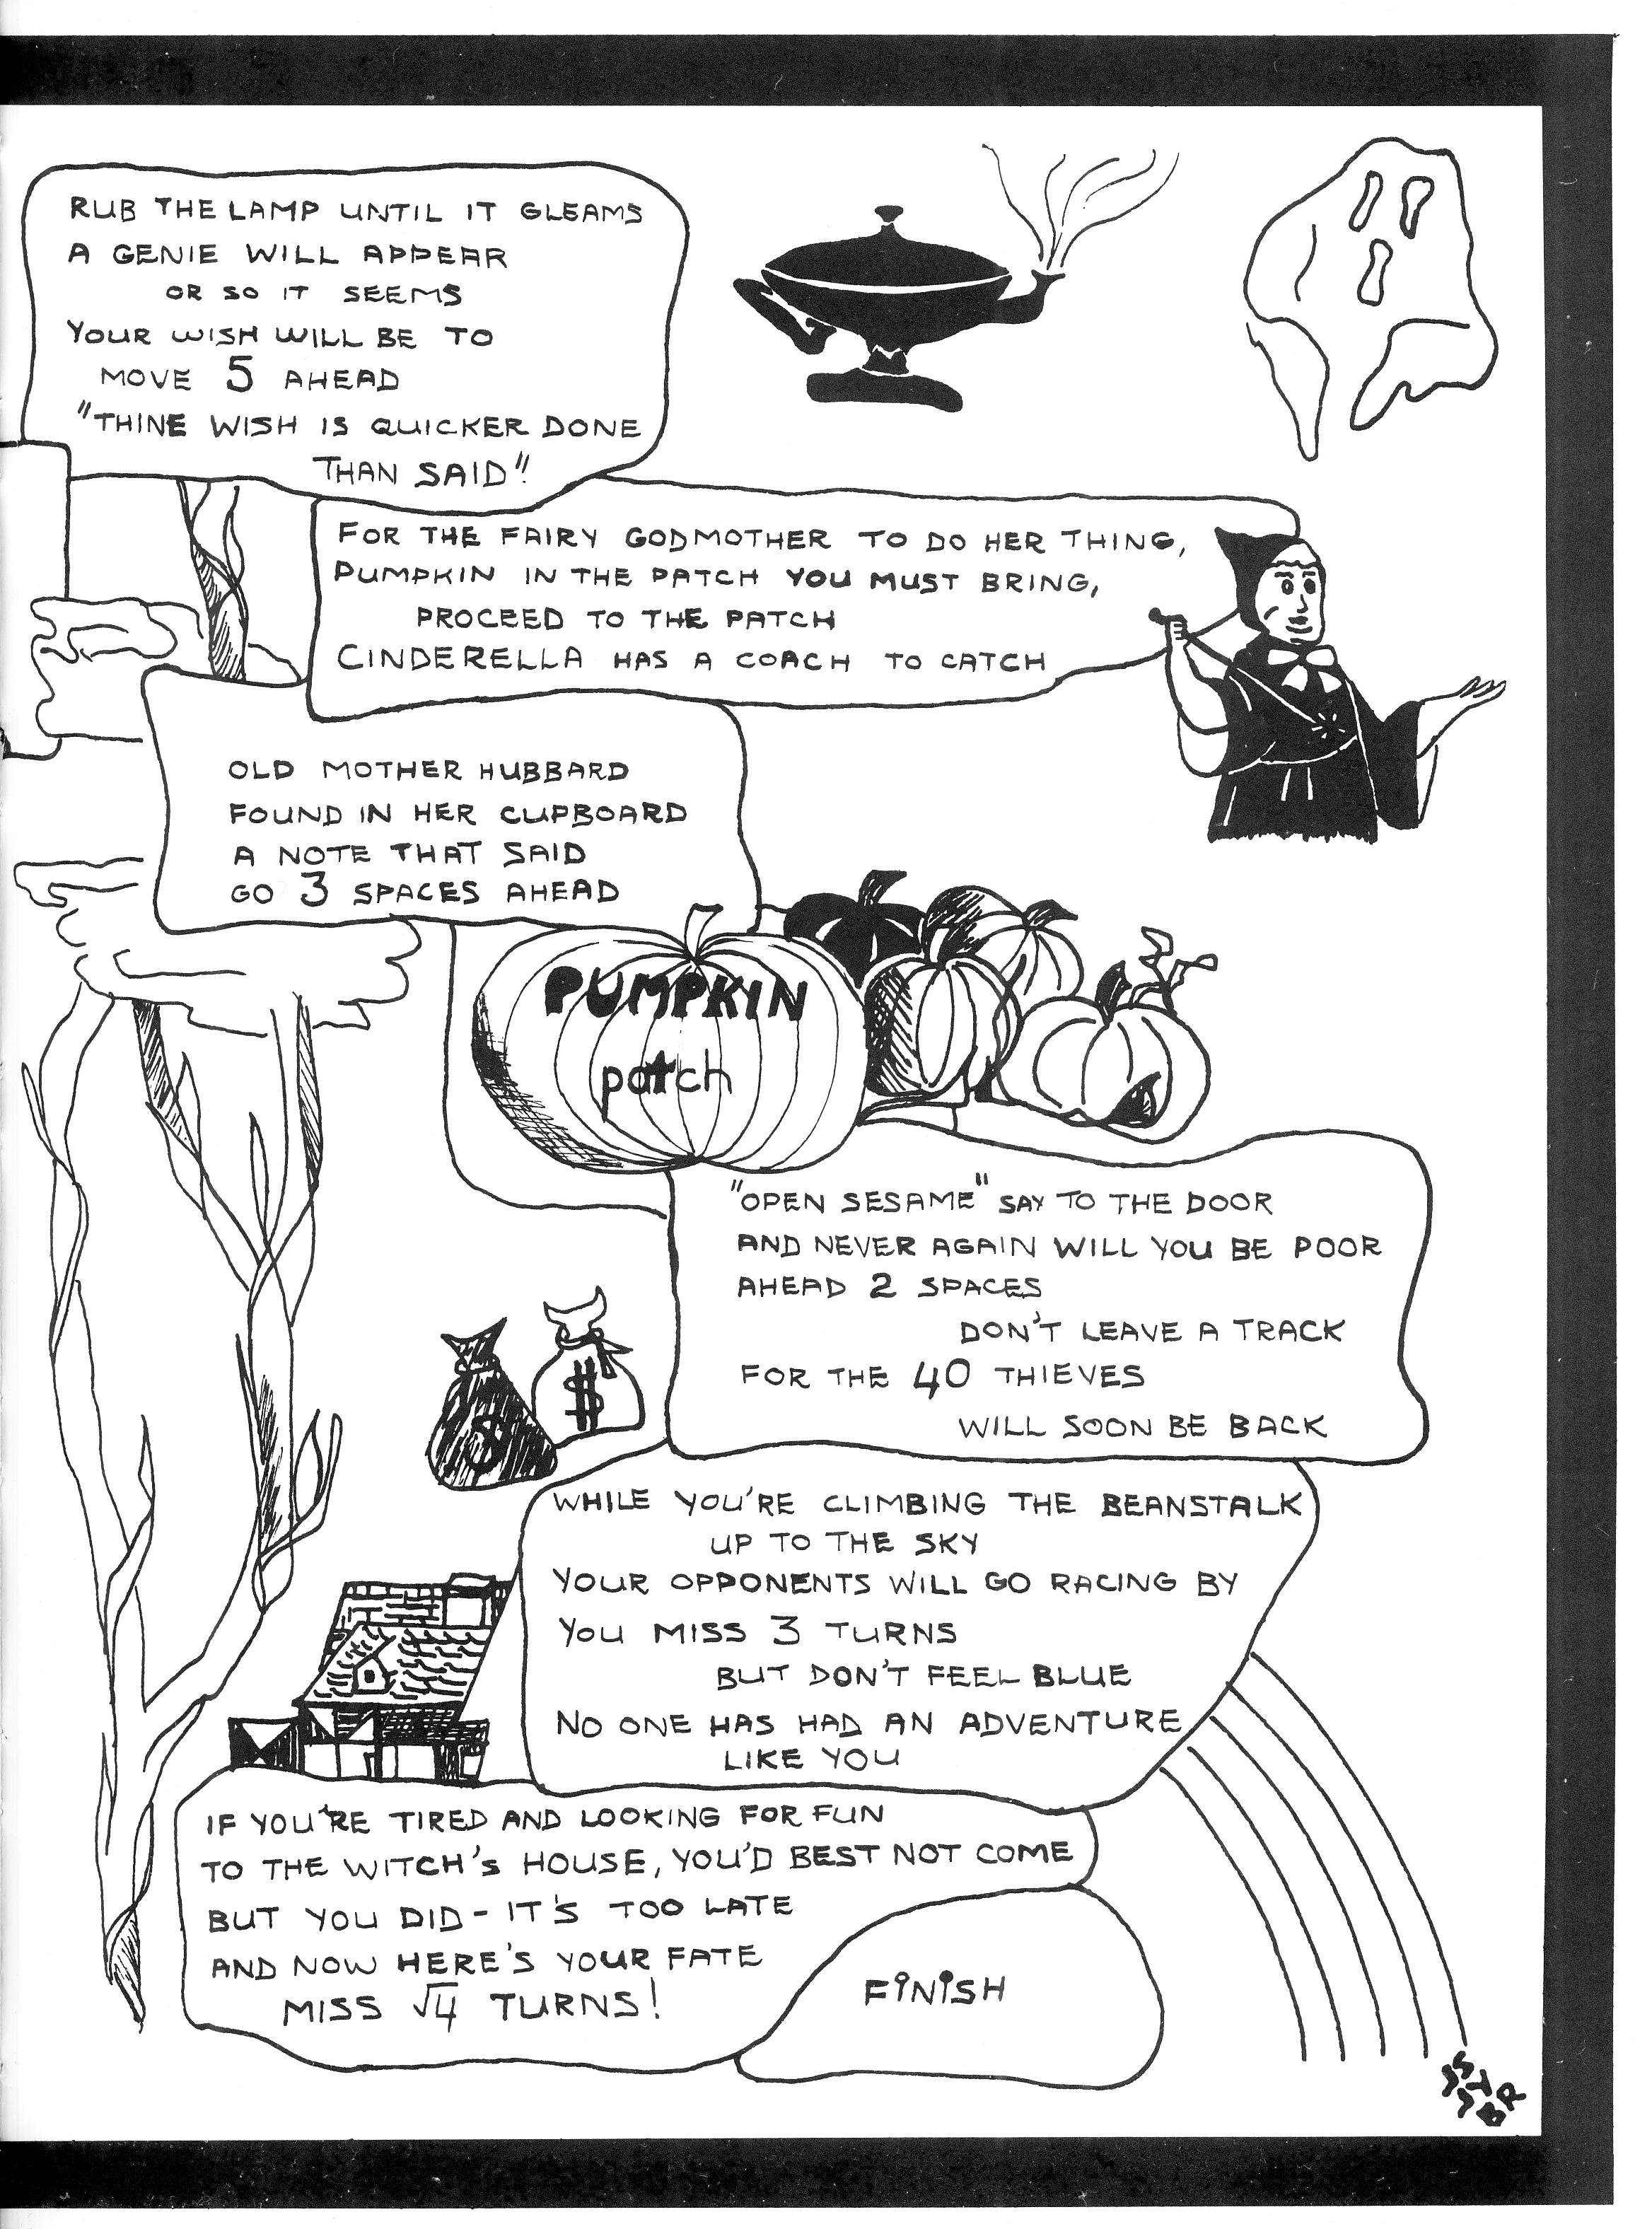 RUB THE LAMP UNTIL IT GLEAMS
A GENIE WILL APPEAR
OR SO IT SEEMS
YOUR WISH WILL BE TO
MOVE 5 AHEAD
"THINE WISH IS QUICKER DONE
THAN SAID"!
FOR THE FAIRY GODMOTHER TO DO HER THING,
PUMPKIN IN THE PATCH YOU MUST BRING,
PROCEED TO THE PATCH
CINDERELLA HAS A COACH TO CATCH
OLD MOTHER HUBBARD
FOUND IN HER CUPBOARD
A NOTE THAT SAID
GO 3 SPACES AHEAD
PUMPKIN
patch
"OPEN SESAME" SAY TO THE DOOR
AND NEVER AGAIN WILL YOU BE POOR
AHEAD 2 SPACES
DON'T LEAVE A TRACK
FOR THE 40 THIEVES
WILL SOON BE BACK
$
$
WHILE YOU'RE CLIMBING THE BEANSTALK
UP TO THE SKY
YOUR OPPONENTS WILL GO RACING BY
YOU MISS 3 TURNS
BUT DON'T FEEL BLUE
NO ONE HAS HAD AN ADVENTURE
LIKE YOU
IF YOU'RE TIRED AND LOOKING FOR FUN
TO THE WITCH'S HOUSE, YOU'D BEST NOT COME
BUT YOU DID - IT'S TOO LATE
AND NOW HERE'S YOUR FATE
MISS √4 TURNS!
FINISH